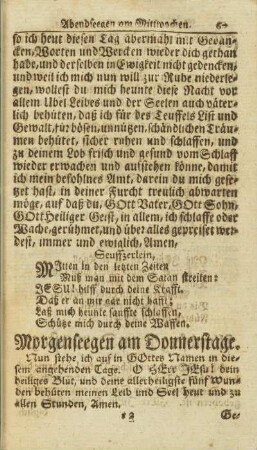 Abendseegen am Mittwochen. 67
so ich heut diesen Tag abermahl mit Gedan-
cken, Worten und Wercken wieder dich gethan
habe, und derselben in Ewigkeit nicht gedencken,
und weil ich mich nun will zur Ruhe niederle-
gen, wollest du mich heunte diese Nacht vor
allem Ubel Leibes und der Seelen auch väter-
lich behüten, daß ich für des Teuffels List und
Gewalt, für bösen, unnützen, schändlichen Träu-
men behütet, sicher ruhen und schlaffen, und
zu deinem Lob frisch und gesund vom Schlaff
wieder erwachen und aufstehen könne, damit
ich mein befohlnes Amt, darein du mich gese-
tzet hast, in deiner Furcht treulich abwarten
möge, auf daß du, GOtt Vater, GOtt Sohn,
GOtt Heiliger Geist, in allem, ich schlaffe oder
Wache, gerühmet, und über alles gepreiset wer-
dest, immer und ewiglich, Amen.
Seuffzerlein.
Mitten in den letzten Zeiten
Muß man mit dem Satan streiten:
JESU! hilff durch deine Krafft,
Daß er an mir gar nicht hafft;
Laß mich heunte sanffte schlaffen,
Schütze mich durch deine Waffen.
Morgenseegen am Donnerstage.
Nun stehe, ich auf in GOttes Namen in die-
sem angehenden Tage. O HErr JEsu! dein
heiliges Blut, und deine allerheiligste fünf Wun-
den behüten meinen Leib und Seel heut und zu
allen Stunden, Amen.
Ge-